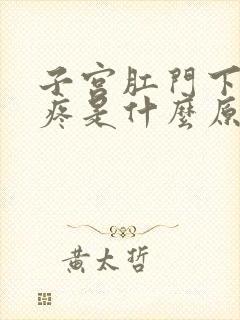 子宮肛門下
疼是什麼原
黃太哲